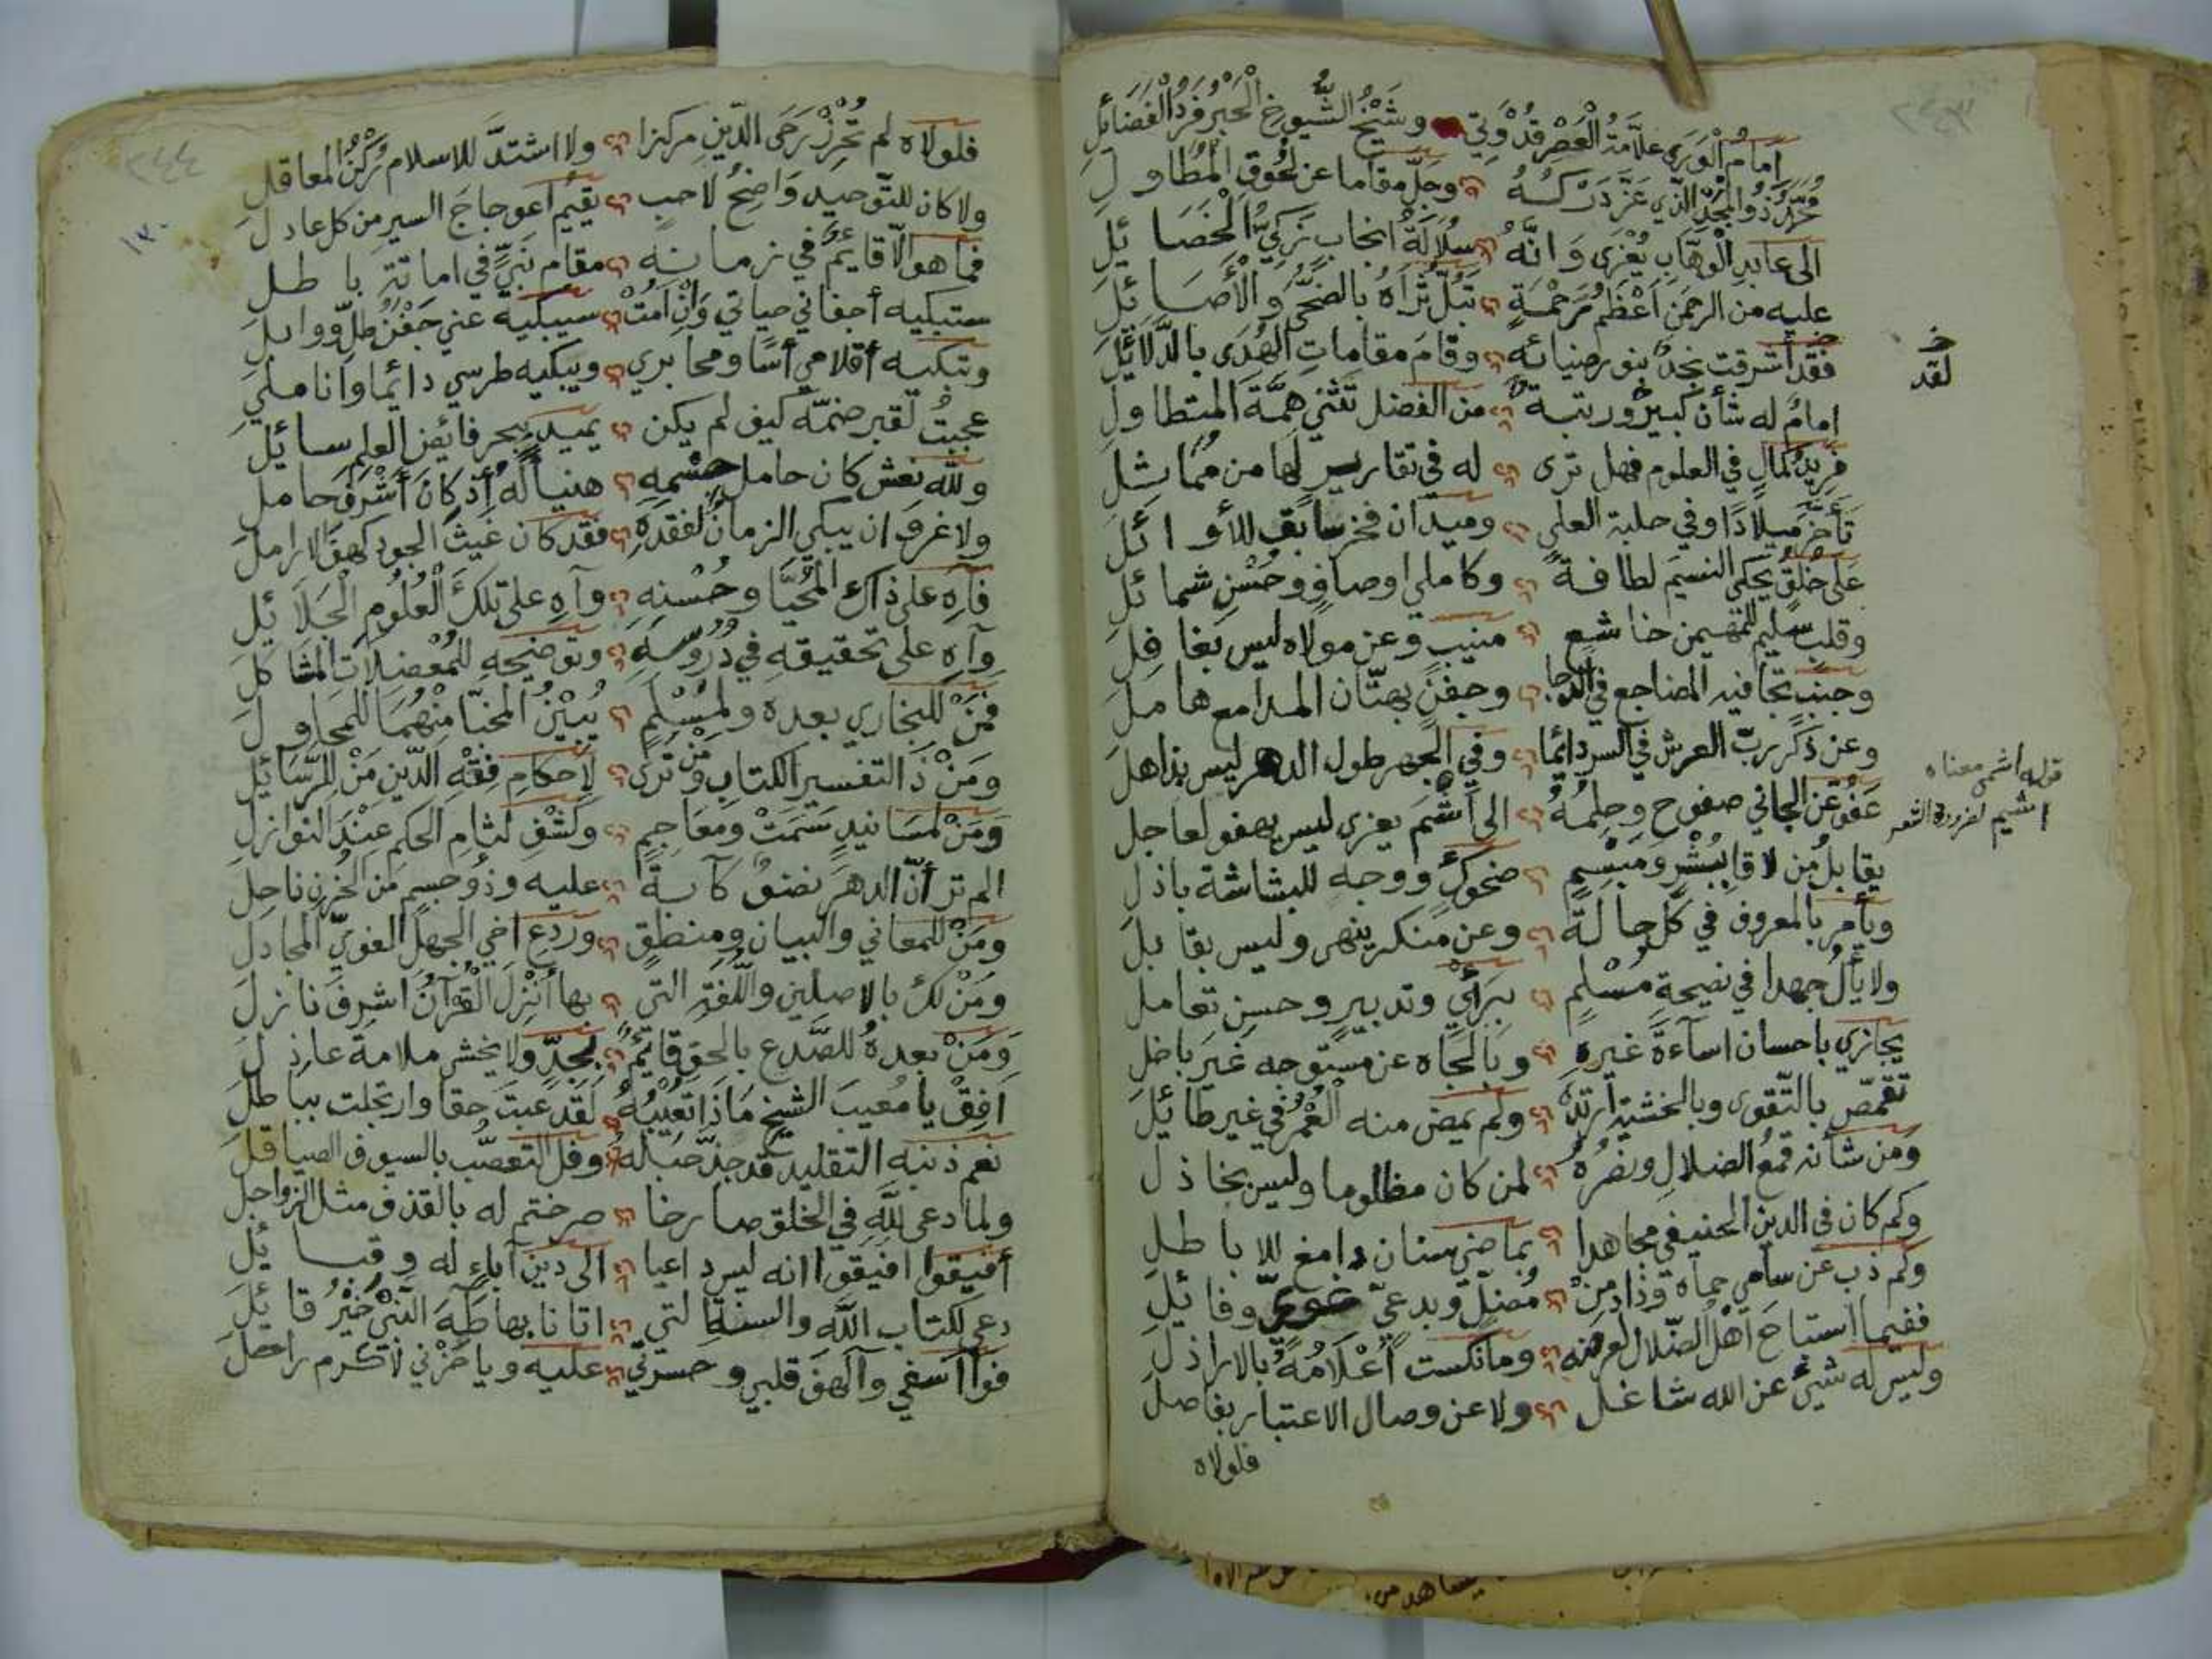 ٢٤٣
امام الورى علامة العصر قدوتي وشيخ الشيوخ الحبر فرد الفضائل
محمد ذو المجد الذي عز دركه وجل مقاما عن لحوق المطاول
الى عابد الوهاب يعزى وانه سلالة انجاب زكي الخصائل
عليه من الرحمن اعظم رحمة تبل ثراه بالضحى والأصائل
فقد أشرقت نجد بنور ضيائه وقام مقامات الهدى بالدلائل
خ
لقد
امام له شأن كبير ورتبة من الفضل تثني همة المتطاول
فريد كمال في العلوم فهل ترى له في تقارير لها من مماشل
تأخر ميلادا وفي حلبة العلى وميدان فخر سابق للأوائل
على خلق يحكي النسيم لطافة وكاملي اوصاف وحسن شمائل
وقلب سليم للمهيمن خاشع منيب وعن مولاه ليس بغافل
وجنب تجافيه المضاجع في الدجا وجفن بهتان المدامع هامل
وعن ذكر رب العرش في السر دائما وفي الجهر طول الدهر ليس بذاهل
عفو عن الجاني صفوح وحلمه الى أشم يعزى ليس يهفو لعاجل
قوله اشم معناه
اشيم لضرورة الشعر
يقابل من لاقا ببشر ومبسم ضحوك ووجه للبشاشة باذل
ويأمر بالمعروف في كل حالة وعن منكر ينهى وليس بقابل
ولا يأل جهدا في نصيحة مسلم برأي وتدبير وحسن تعامل
يجازي باحسان اساءة غيره وبالجاه عن مستوجه غير باخل
تقمص بالتقوى وبالخشية ارتدى ولم يمض منه العمر في غير طائل
ومن شأنه قمع الضلال ونصره لمن كان مظلوما وليس بخاذل
وكم كان في الدين الحنيفي مجاهدا بماضي سنان دامغ للاباطل
وكم ذب عن سامي حماه وذاد من مضل وبدعي غوي وفائل
ففيما استباح اهل الضلال لعرضه وما نكست أعلامه بالاراذل
وليس له شيئ عن الله شاغل ولا عن وصال الاعتبار بفاصل
فلولاه
٢٤٤
١٣٠
فلولاه لم تحرز رحى الدين مركزا ولا اشتد للاسلام ركن المعاقل
ولا كان للتوحيد واضح لاحب يقيم اعوجاج السير من كل عادل
فما هو الا قايم في زمانه مقام نبي في اماتة باطل
ستبكيه أجفاني حياتي وان أمت سيبكيه عني جفن طل ووابل
وتبكيه أقلامي أسا ومحابري ويبكيه طرسي دائما وأناملي
عجبت لقبر ضمه كيف لم يكن يميد ببحر فائض العلم سائل
ولله نعش كان حامل جسمه هنيا له اذ كان أشرف حامل
ولا غرو ان يبكي الزمان لفقده فقد كان غيث الجود كهف الارامل
فآه على ذاك المحيا وحسنه وآه على تلك العلوم الجلائل
وآه على تحقيقه في دروسه وتوضيحه للمعضلات المشاكل
فمن للبخاري بعده ولمسلم يبين المخبا منهما للمحاول
ومن ذا لتفسير الكتاب ومن ترى لاحكام فقه الدين من للرسائل
ومن لمسانيد سمت ومعاجم وكشف لثام الحكم عند النوازل
الم تر أن الدهر نضو كآبة عليه وذو جسم من الحزن ناحل
ومن للمعاني والبيان ومنطق وردع اخي الجهل الغوي المجادل
ومن لك بالاصلين واللغة التي بها أنزل القرآن اشرف نازل
ومن بعده للصدع بالحق قائم بجد ولا يخشى ملامة عاذل
افق يا معيب الشيخ ماذا تعيبه لقد عبت حقا وارتجلت بباطل
نعم ذنبه التقليد قد جذ حبله وفل التعصب بالسيوف الصياقل
ولما دعى لله في الخلق صارخا صرختم له بالقذف مثل الزواجل
أفيقوا افيقوا انه ليس داعيا الى دين آباء له وقبائل
دعى لكتاب الله والسنة التي اتانا بها طه النبي خير قائل
فوا أسفي وآلهف قلبي وحسرتي عليه ويا حزني لأكرم راحل